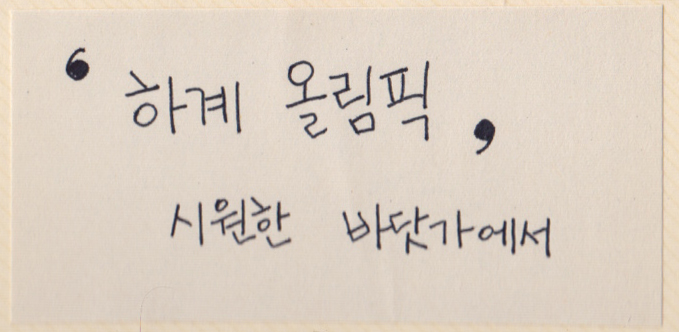 ‘하계 올림픽,
시원한 바닷가에서